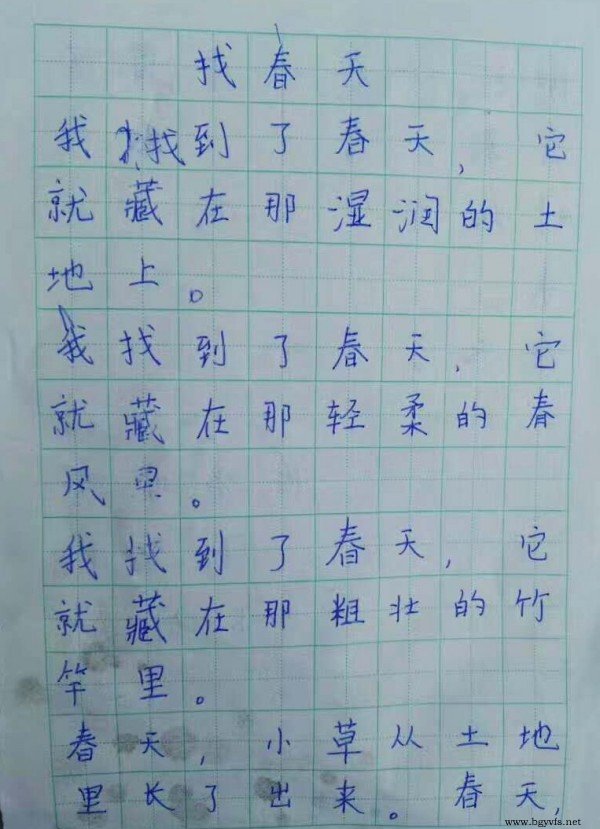 找春天
我找到了春天，它
就藏在那湿润的土
地上。
我找到了春天，它
就藏在那轻柔的春
风里。
我找到了春天，它
就藏在那粗壮的竹
竿里。
春天，小草从土地
里长了出来。春天，
www.bgyvfs.net